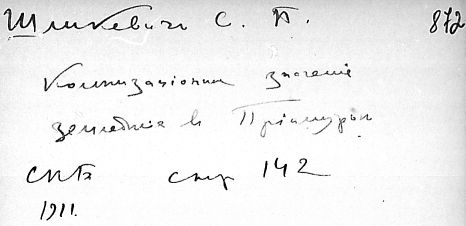 Шликевичъ С. П. 872
Колонизаціонное значеніе
земледѣлія въ Пріамурьи
СПБ стр 142
1911.